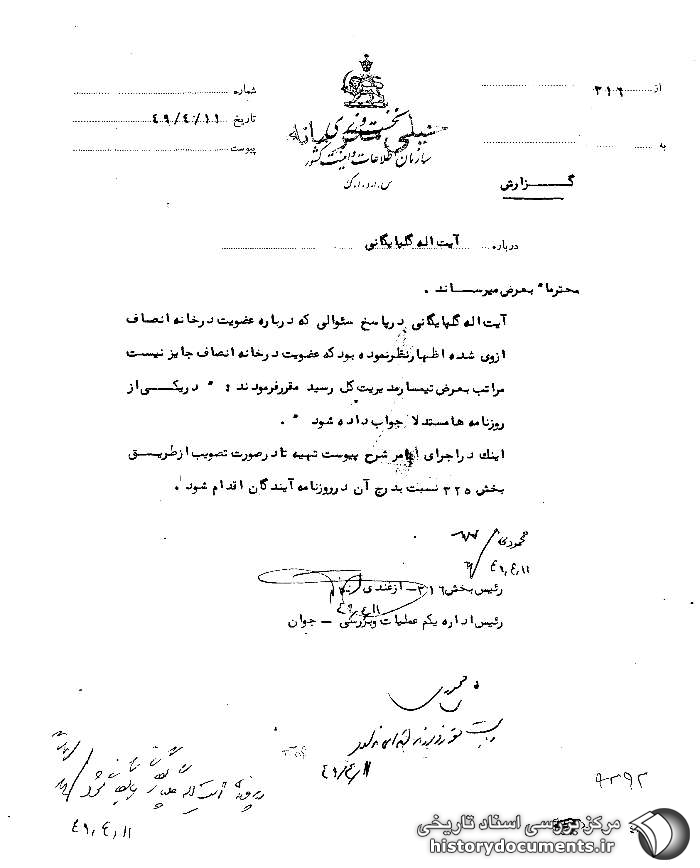 از ۳۱۶
به
شماره
تاریخ ۴۹/۴/۱۱
پیوست
نخست وزیری
سازمان اطلاعات و امنیت کشور
س.ا.و.ا.ک
گزارش
درباره آیت اله گلپایگانی
محترما" بعرض میرساند .
آیت اله گلپایگانی درپاسخ سئوالی که درباره عضویت درخانه انصاف
ازوی شده اظهارنظرنموده بود که عضویت درخانه انصاف جایز نیست
مراتب بعرض تیمسارمدیریت کل رسید مقررفرمودند : " دریکی از
روزنامه ها مستدلا جواب داده شود " .
اینک دراجرای اوامر شرح پیوست تهیه تادرصورت تصویب ازطریق
بخش ۳۲۵ نسبت بدرج آن درروزنامه آیندگان اقدام شود .
۴۹/۴/۱۱
رئیس بخش ۳۱۶ - ازغندی
۴۹/۴/۱۱
رئیس اداره یکم عملیات وبررسی - جوان
۴۹/۴/۱۱
۴۹/۴/۱۱
مرکز بررسی اسناد تاریخی
historydocuments.ir